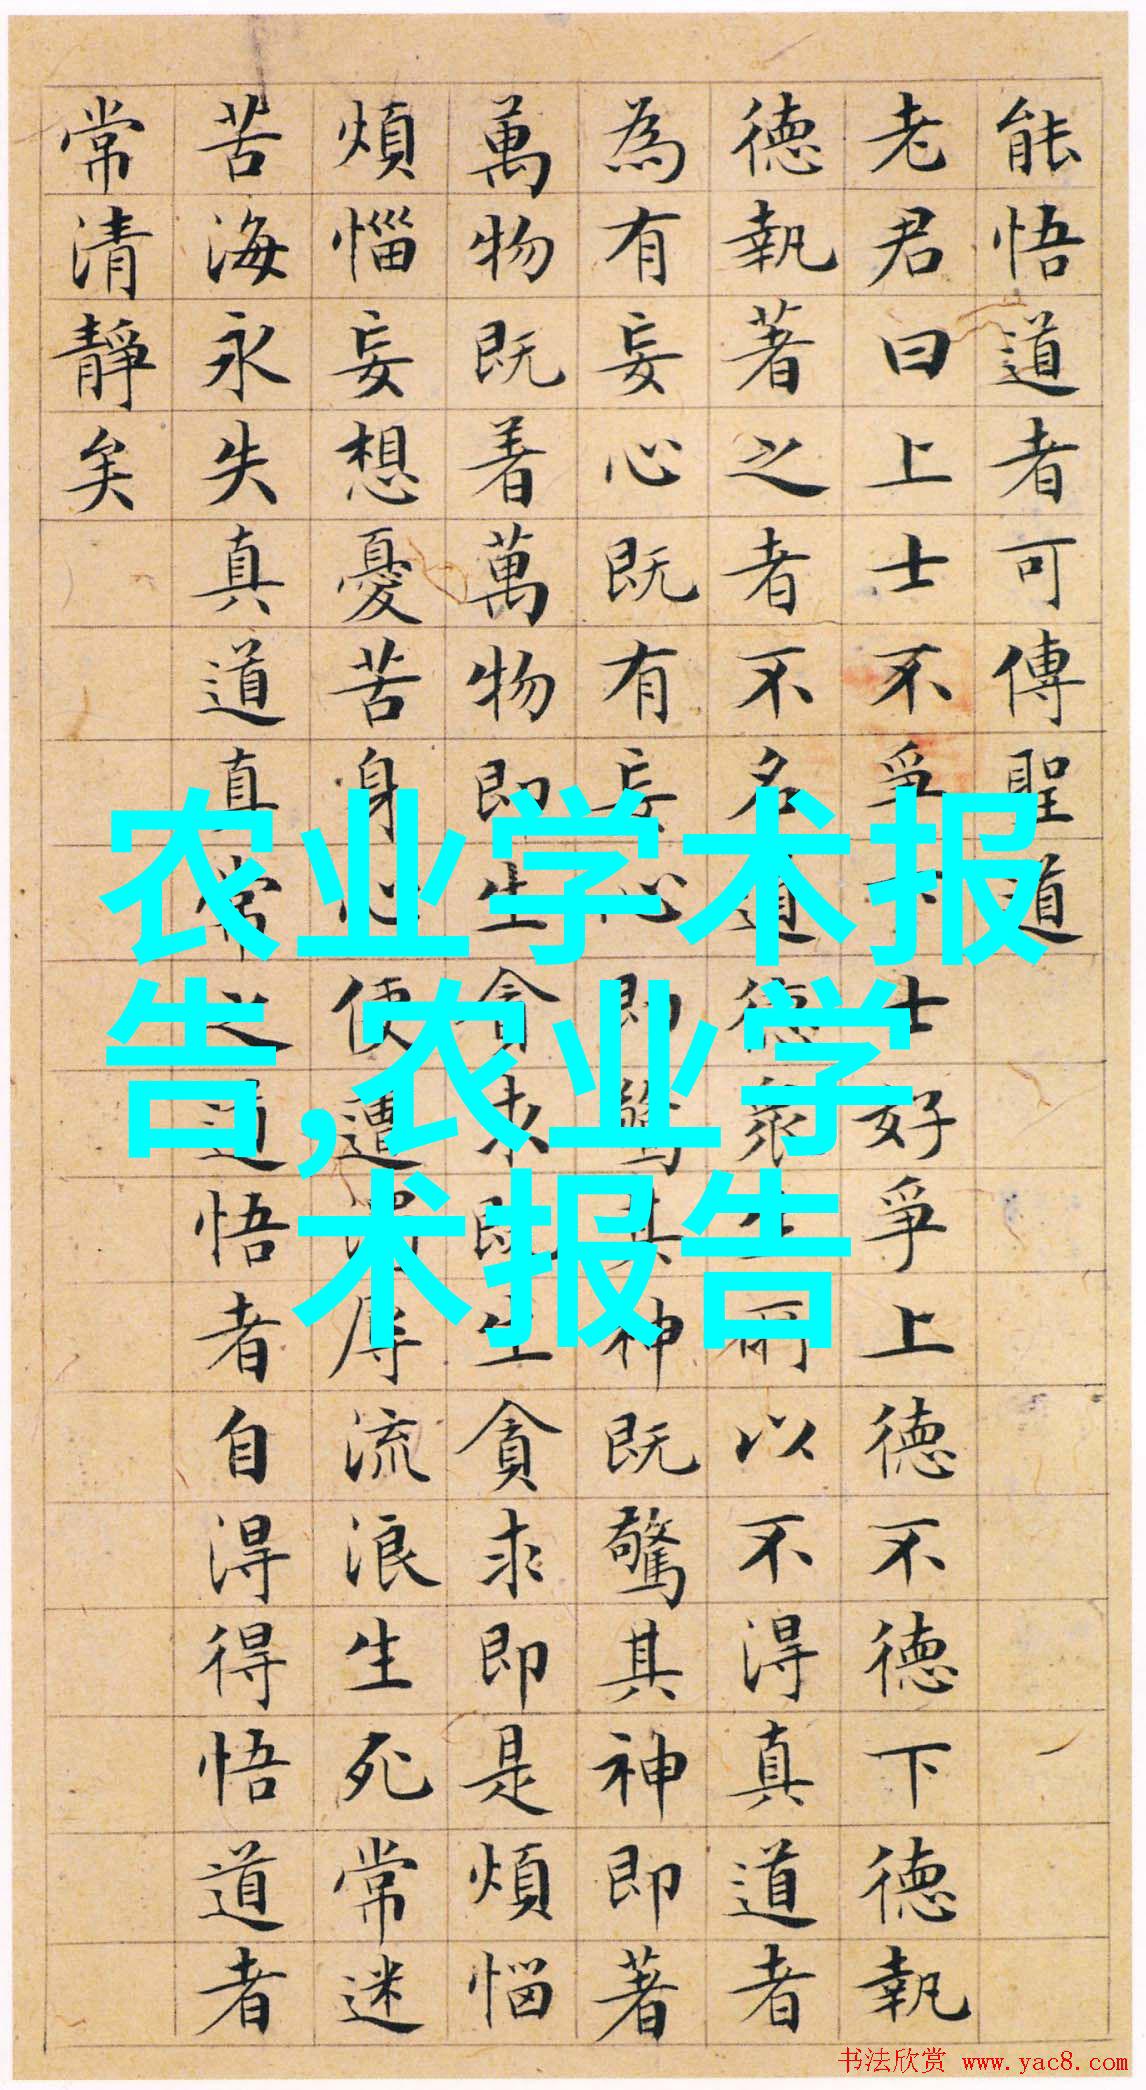 能悟道者可傳聖道
老君曰上士不爭下士好爭上德不德下德執
德執著之者不名道德衆生所以不得真道者
為有妄心既有妄心即驚其神既驚其神即著
萬物既着萬物即生貪求既生貪求即是煩惱
煩惱妄想憂苦身心便遭濁辱流浪生死常迷
苦海永失真道真常之道悟者自得得悟道者
常清靜矣
农业学术报
告,农业学
术报告
书法欣赏 www.yac8.com